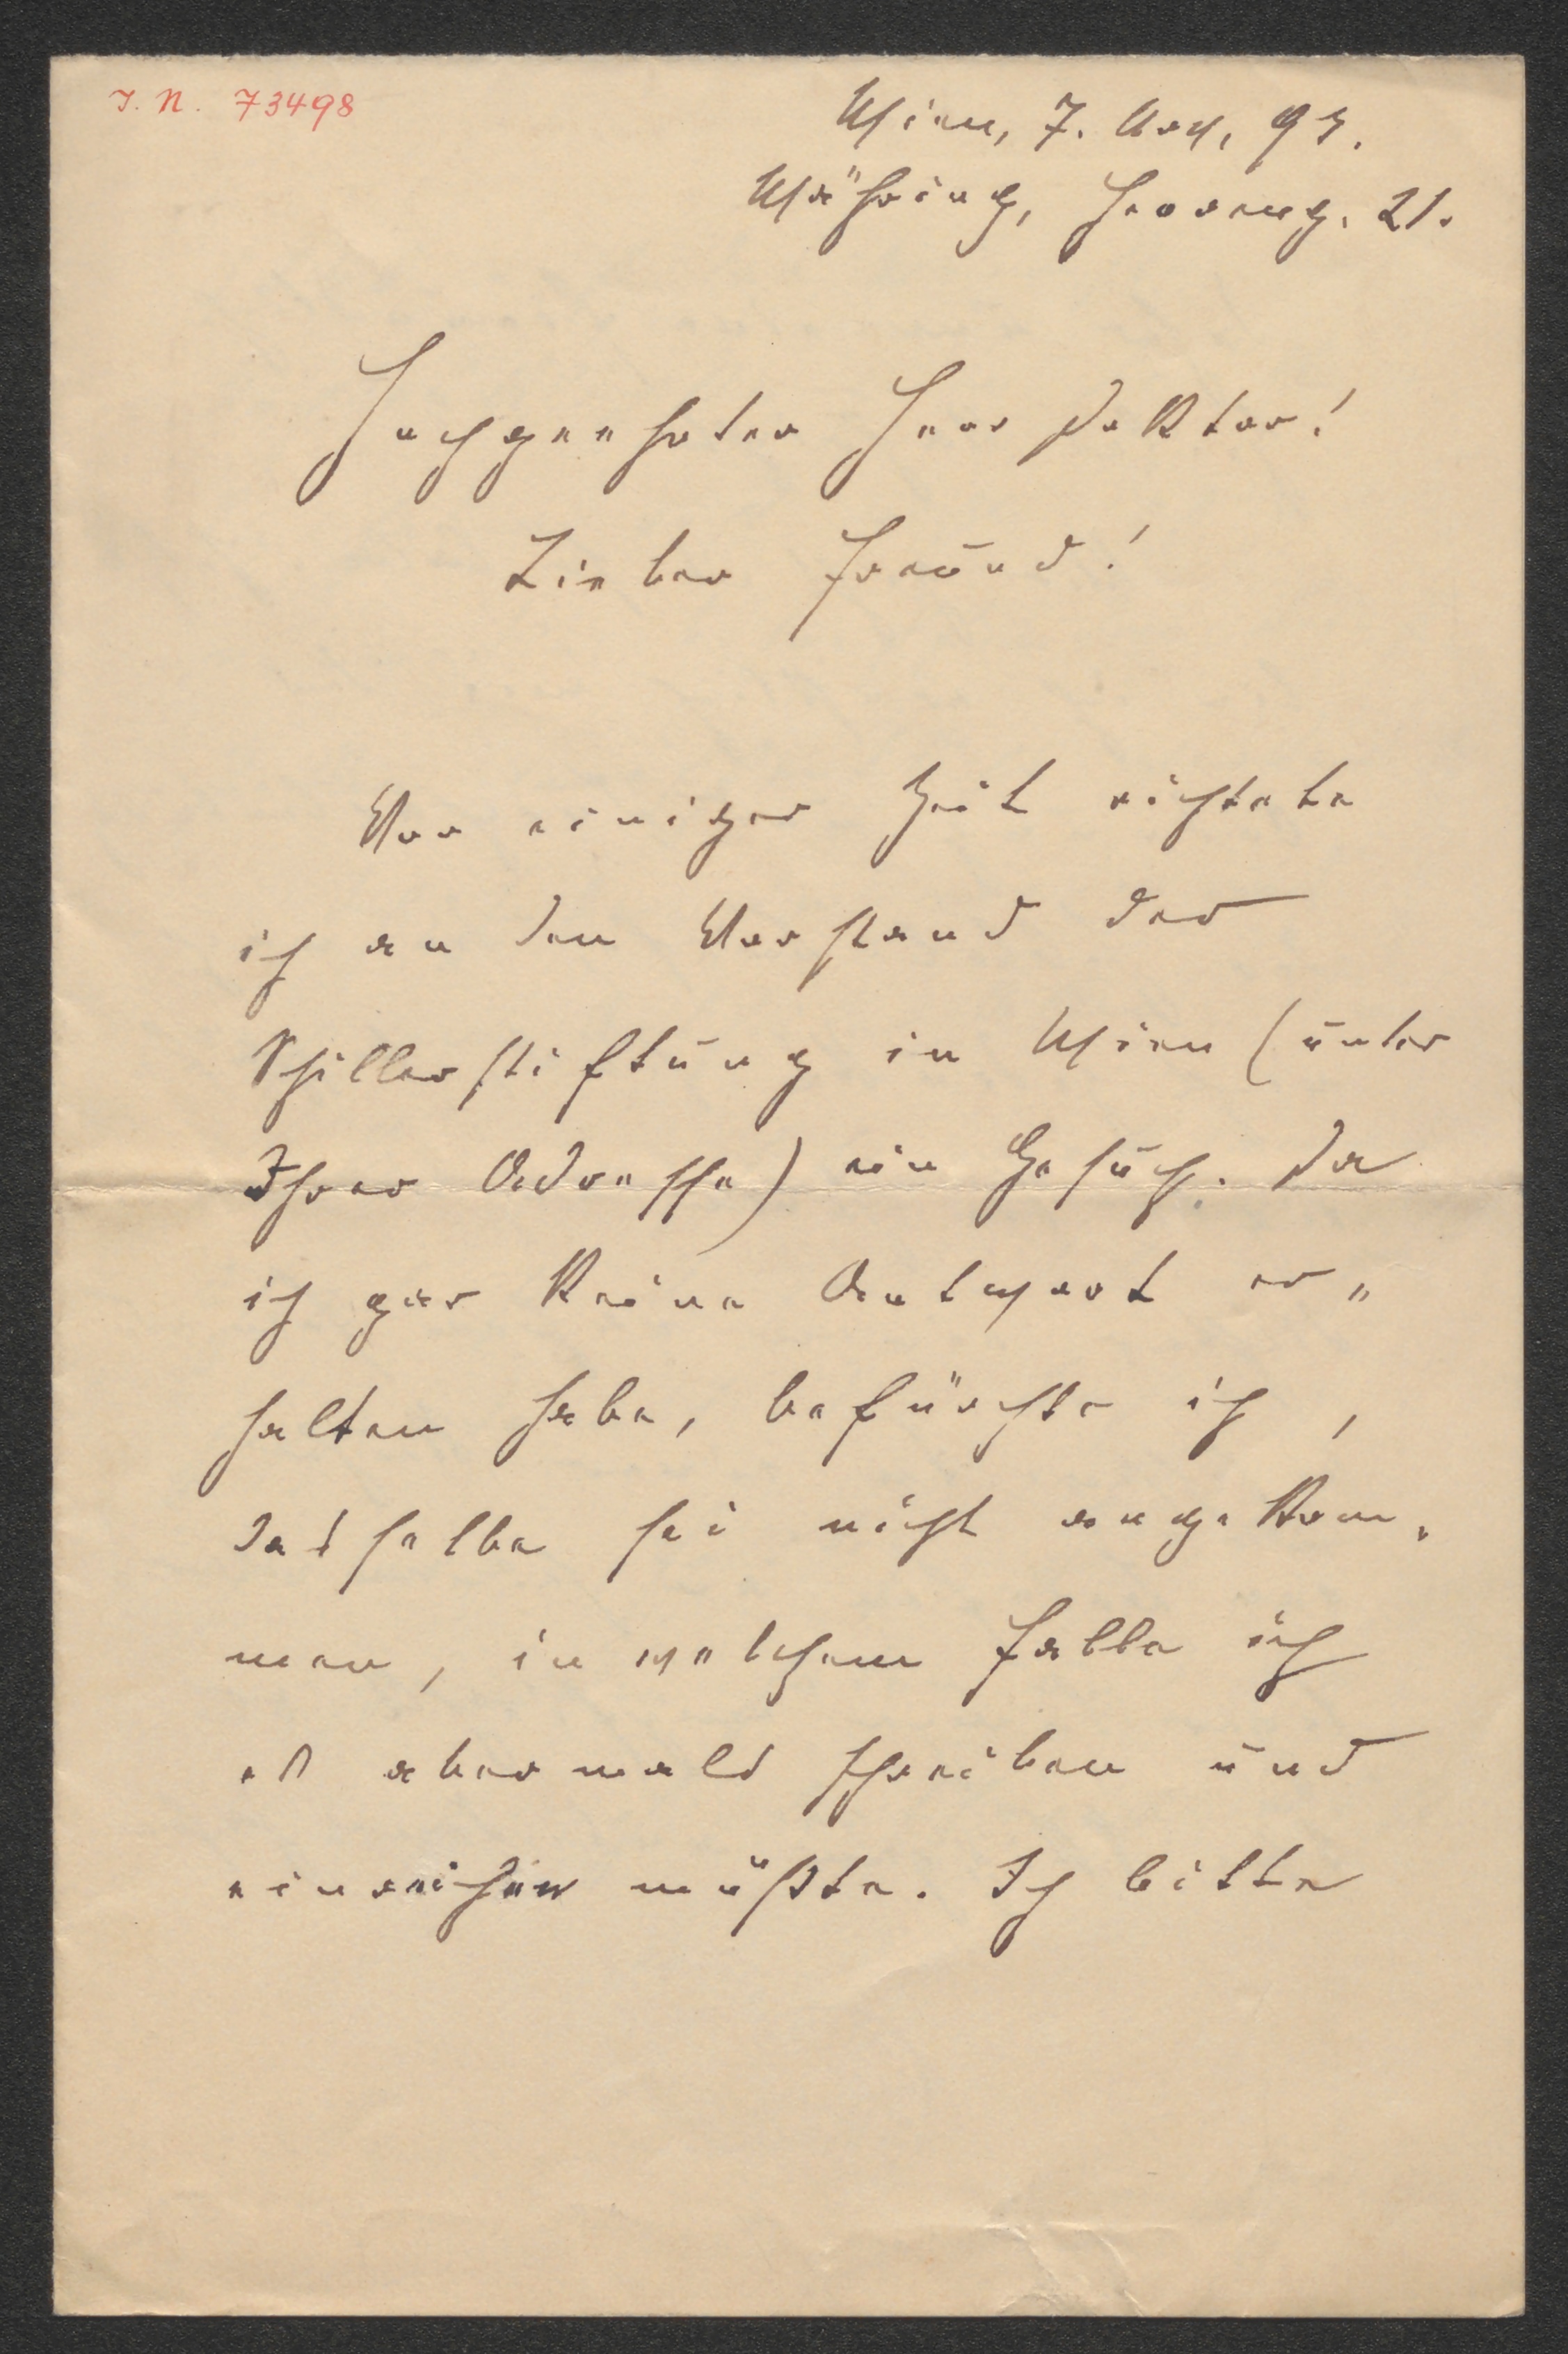 I. N. 73498
Wien, 7. Nov. 95.
Währing, Herreng. 21.
Hochgeehrter Herr Doktor!
Lieber Freund!
Vor einiger Zeit richtete
ich an den Vorstand der
Schillerstiftung in Wien (unter
Ihrer Adresse) ein Gesuch. Da
ich gar keine Antwort er„
halten habe, befürchte ich,
dasselbe sei nicht angekom„
men, in welchem Falle ich
es abermals schreiben und
einreichen müßte. Ich bitte